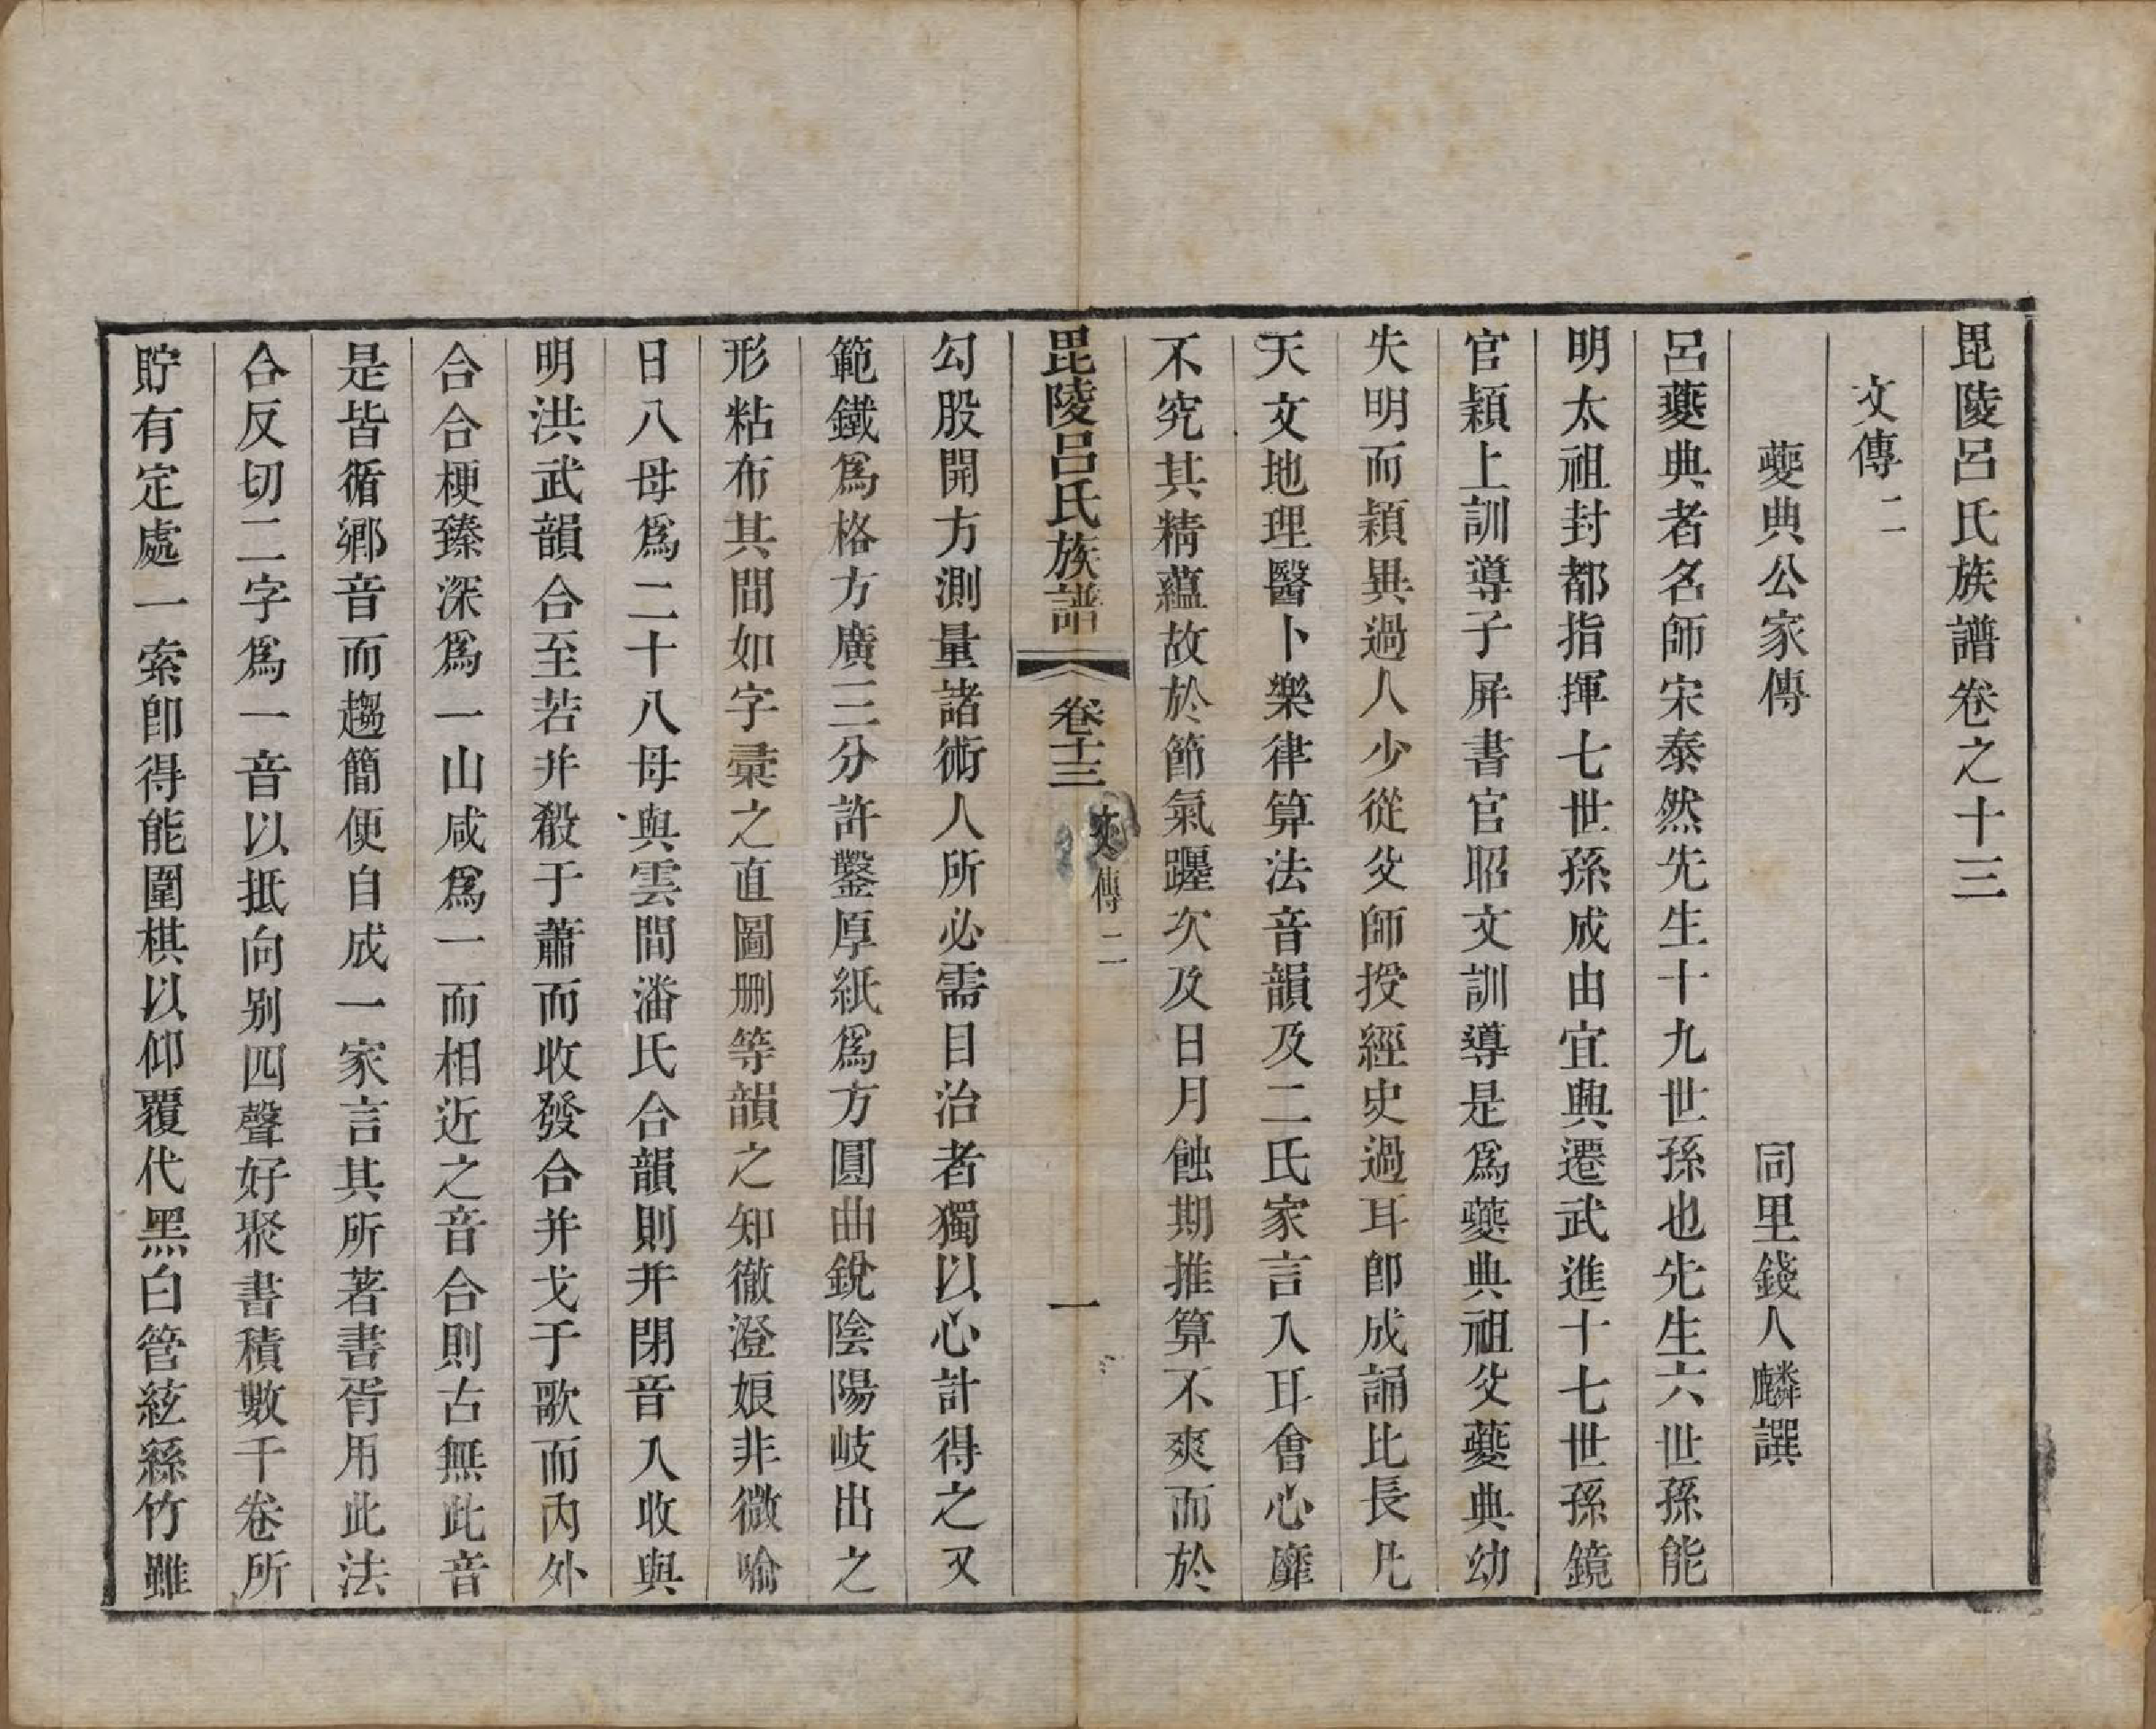 毘陵呂氏族譜卷之十三
文傳二
夔典公家傳
同里錢人麟譔
呂夔典者名師宋泰然先生十九世孫也先生六世孫能
明太祖封都指揮七世孫成由宜興遷武進十七世孫鏡
官潁上訓導子屏書官昭文訓導是爲夔典祖父夔典幼
失明而穎異過人少從父師授經史過耳卽成誦比長凡
天文地理醫卜樂律算法音韻及二氏家言入耳會心靡
不究其精蘊故於節氣躔次及日月蝕期推算不爽而於
毘陵呂氏族譜
卷十三
文傳二
一
勾股開方測量諸術人所必需目治者獨以心計得之又
範鐵爲格方廣三分許鑿厚紙爲方圓曲銳陰陽岐出之
形粘布其間如字彙之直圖刪等韻之知徹澄娘非微喻
日八母爲二十八母與雲間潘氏合韻則幷閉音入收與
明洪武韻合至若幷殺于蕭而收發合幷戈于歌而內外
合合梗臻深爲一山咸爲一而相近之音合則古無此音
是皆循鄉音而趨簡便自成一家言其所著書胥用此法
合反切二字爲一音以抵向别四聲好聚書積數千卷所
貯有定處一索卽得能圍棋以仰覆代黑白管絃絲竹雖